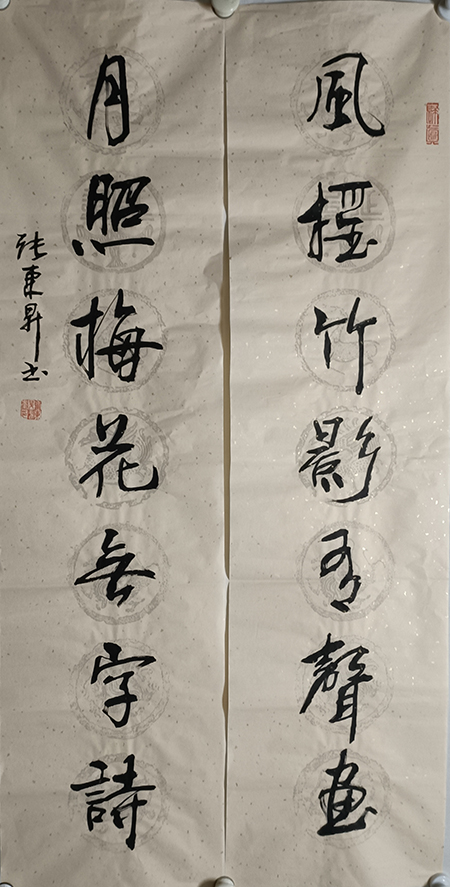 風摇竹影有聲畫
月照梅花無字詩
張東昇書